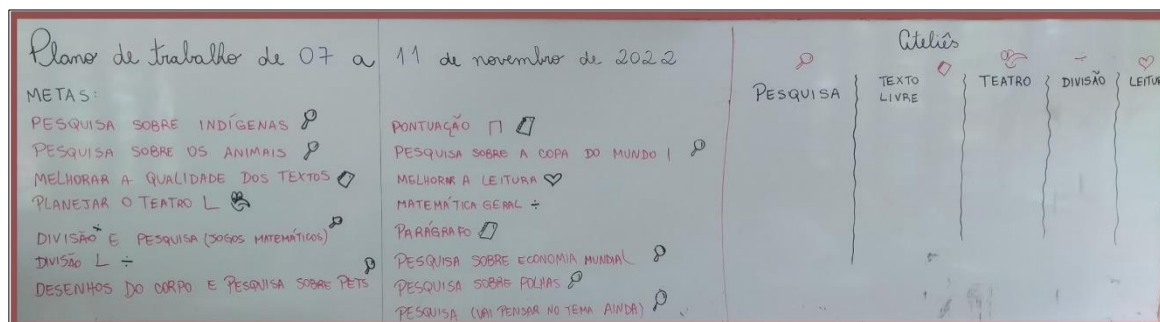 Plano de trabalho de 07 a 11 de novembro de 2022
METAS:
PESQUISA SOBRE INDÍGENAS
PESQUISA SOBRE OS ANIMAIS
MELHORAR A QUALIDADE DOS TEXTOS
PLANEJAR O TEATRO L
DIVISÃO E PESQUISA (JOGOS MATEMÁTICOS)
DIVISÃO L ÷
DESENHOS DO CORPO E PESQUISA SOBRE PETS
PONTUAÇÃO
PESQUISA SOBRE A COPA DO MUNDO |
MELHORAR A LEITURA
MATEMÁTICA GERAL ÷
PARÁGRAFO
PESQUISA SOBRE ECONOMIA MUNDIAL
PESQUISA SOBRE FOLHAS
PESQUISA (VAI PENSAR NO TEMA AINDA)
Ateliês
PESQUISA
TEXTO
LIVRE
TEATRO
÷
DIVISÃO
LEITUR